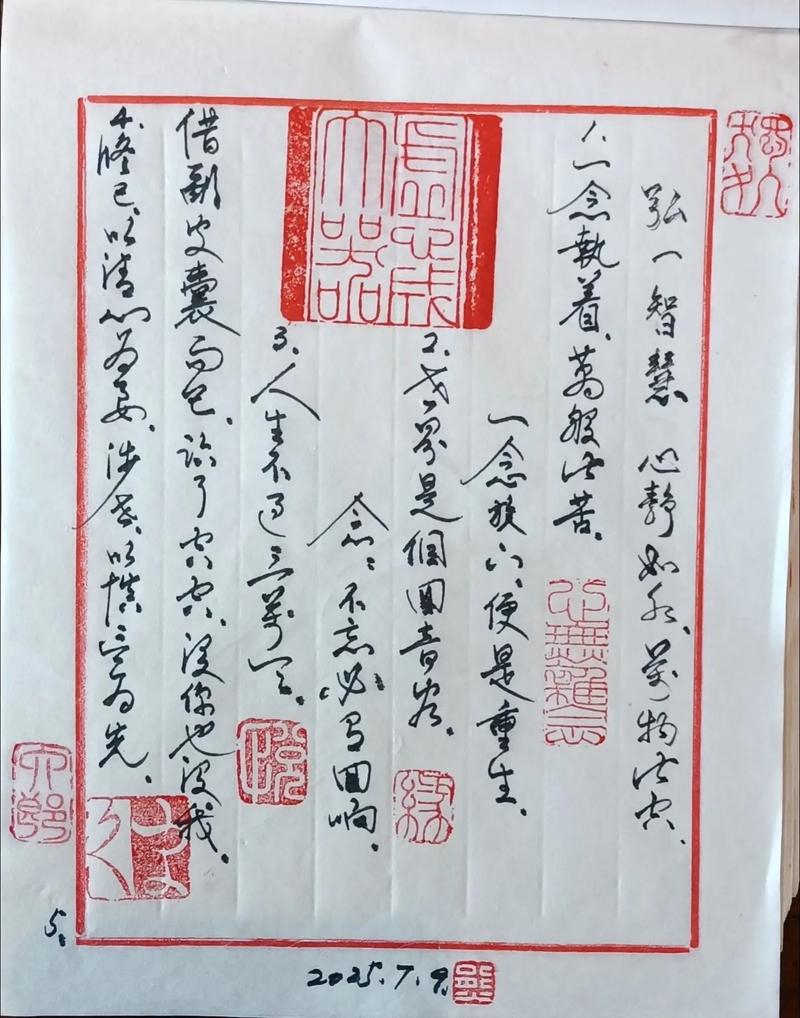 弘一智慧 心静如水、萬物皆空.
1. 一念執着、萬般皆苦.
一念放下、便是重生.
心無雜念
2. 世界是個回音谷.
缘
念:不忘必有回响.
3. 人生不过三萬天.
借副皮囊而已、临了空空、没你也没我.
4. 修己、以清心为要、涉世、以慎言为先.
5.
2025.7.9.